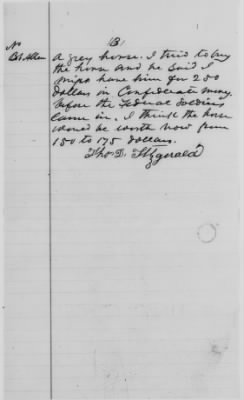 (3)
No
B.S. Allen
a grey horse. I tried to buy
the horse and he said I
might have him for 250
dollars in Confederate money
before the Federal Soldiers
came in. I think the horse
would be worth now from
150 to 175 dollars.
Tho. D. Fitzgerald